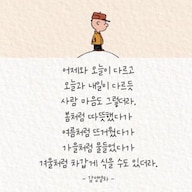 어제와 오늘이 다르고
오늘과 내일이 다르듯
사람 마음도 그렇더라.
봄처럼 따뜻했다가
여름처럼 뜨거웠다가
가을처럼 물들었다가
겨울처럼 차갑게 식을 수도 있더라.